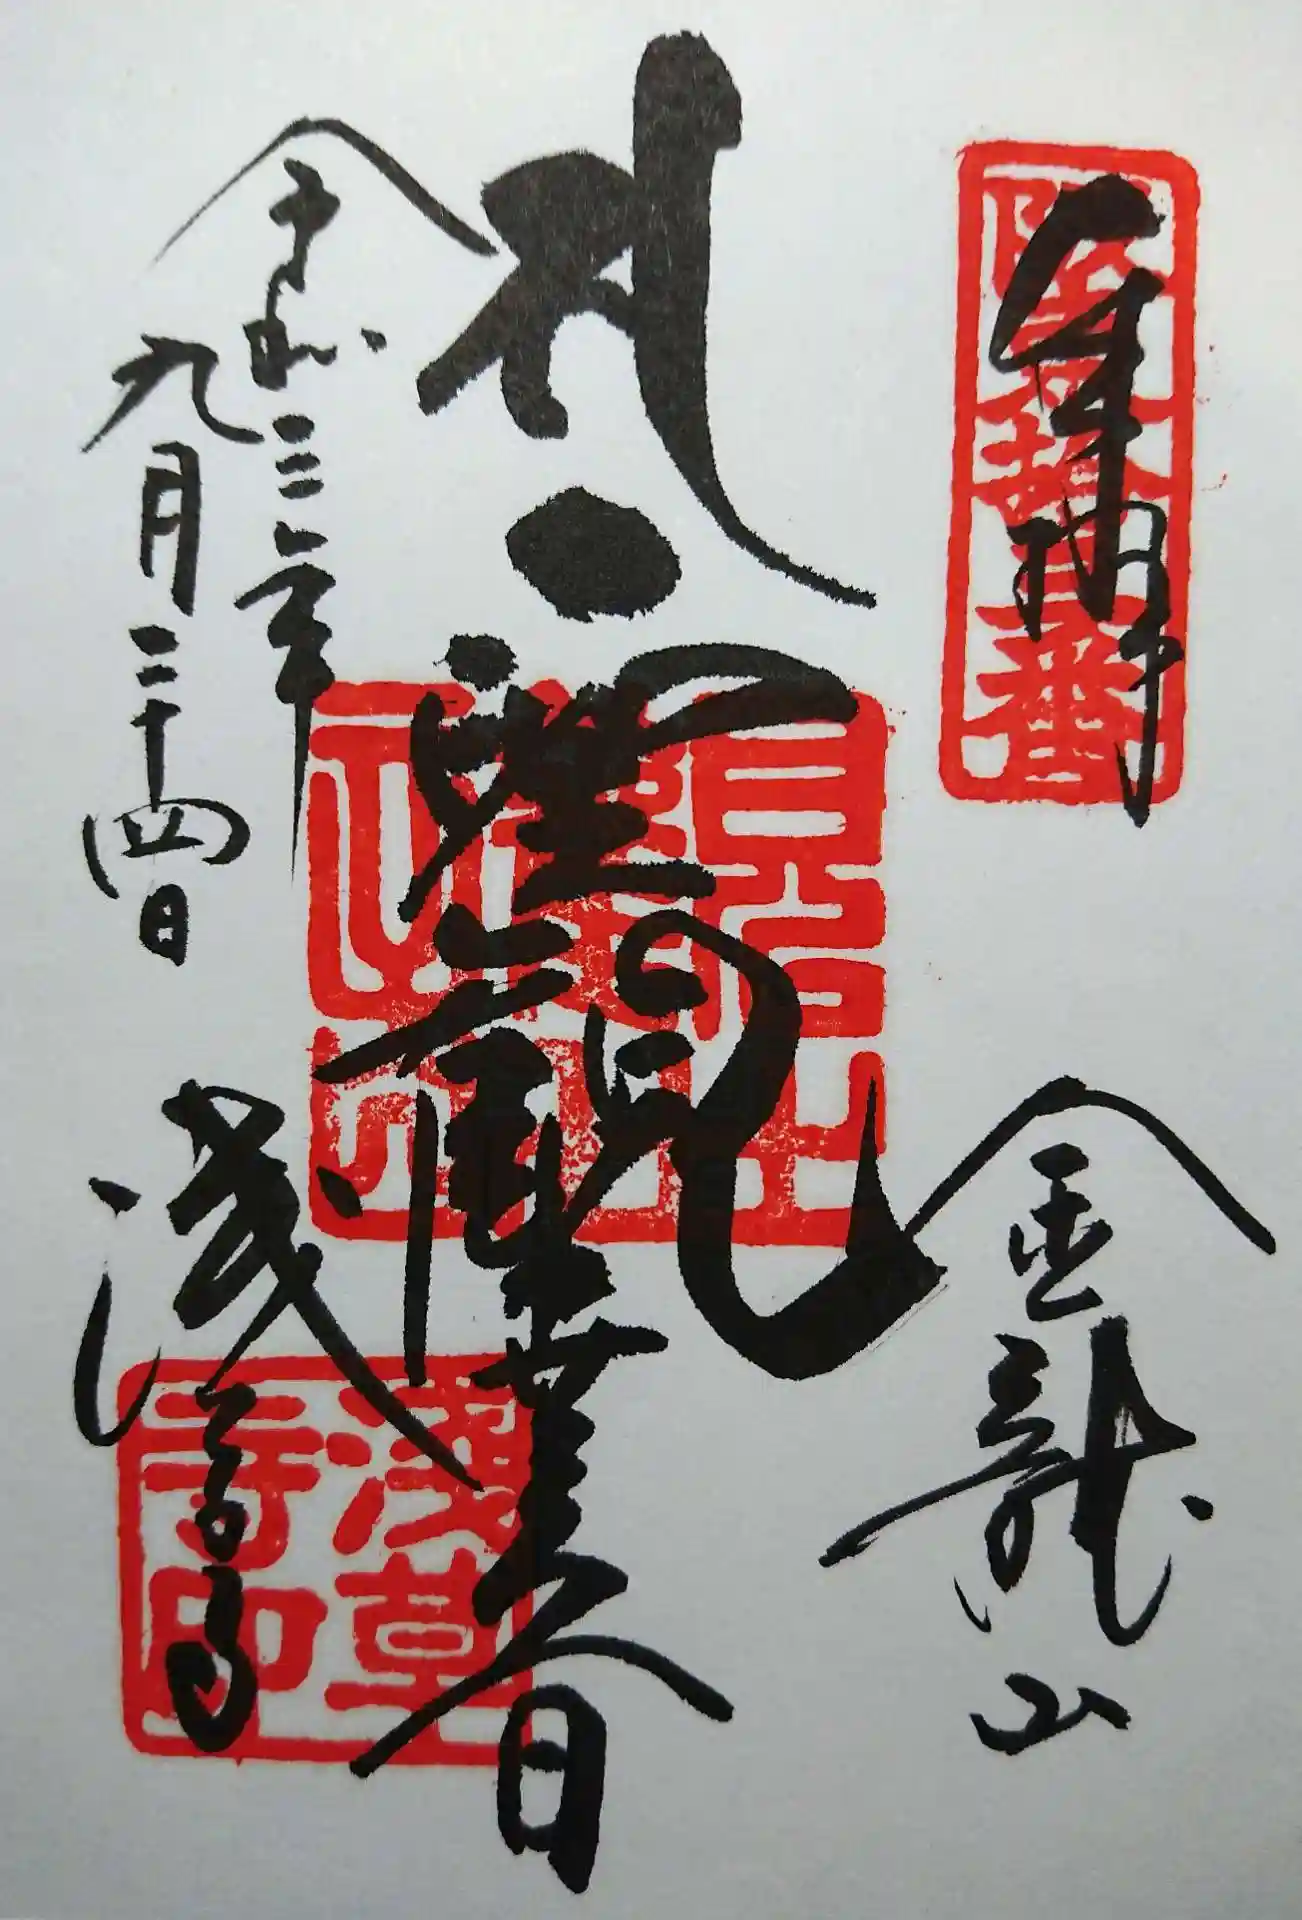 奉拝
阪東拾三番
金龍山
聖観世音
令和三年
九月二十四日
浅草寺
淺草
寺印